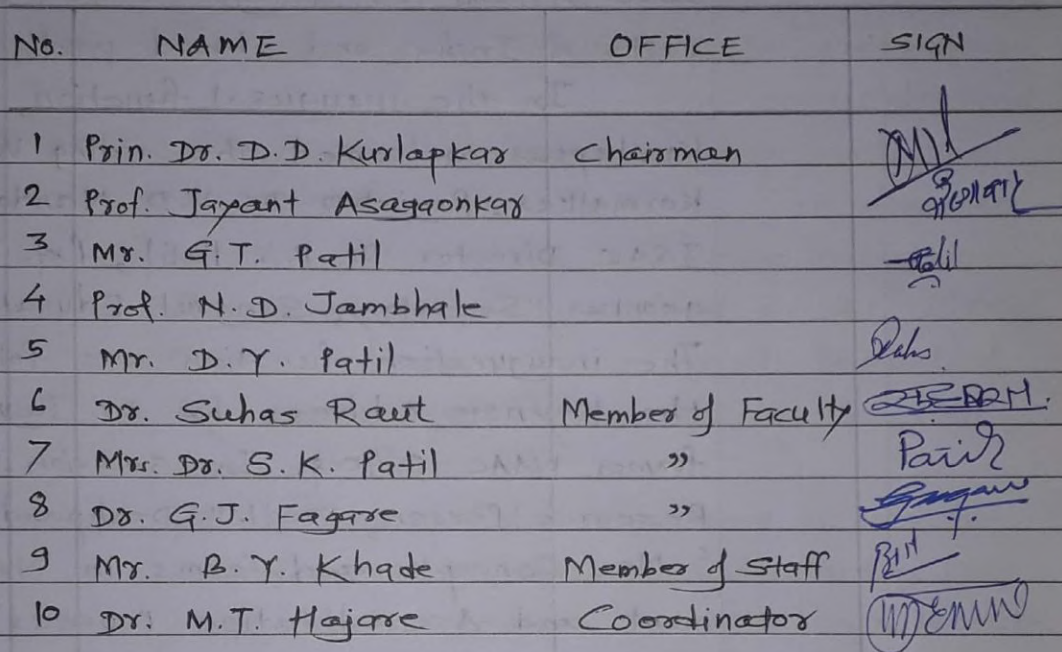 No. NAME OFFICE SIGN
1 Prin. Dr. D.D. Kurlapkar Chairman
2 Prof. Jayant Asagaonkar
3 Mr. G.T. Patil
4 Prof. N.D. Jambhale
5 Mr. D.Y. Patil
6 Dr. Suhas Raut Member of Faculty
7 Mrs. Dr. S.K. Patil ,,
8 Dr. G.J. Fagare ,,
9 Mr. B.Y. Khade Member of Staff
10 Dr. M.T. Hajare Coordinator